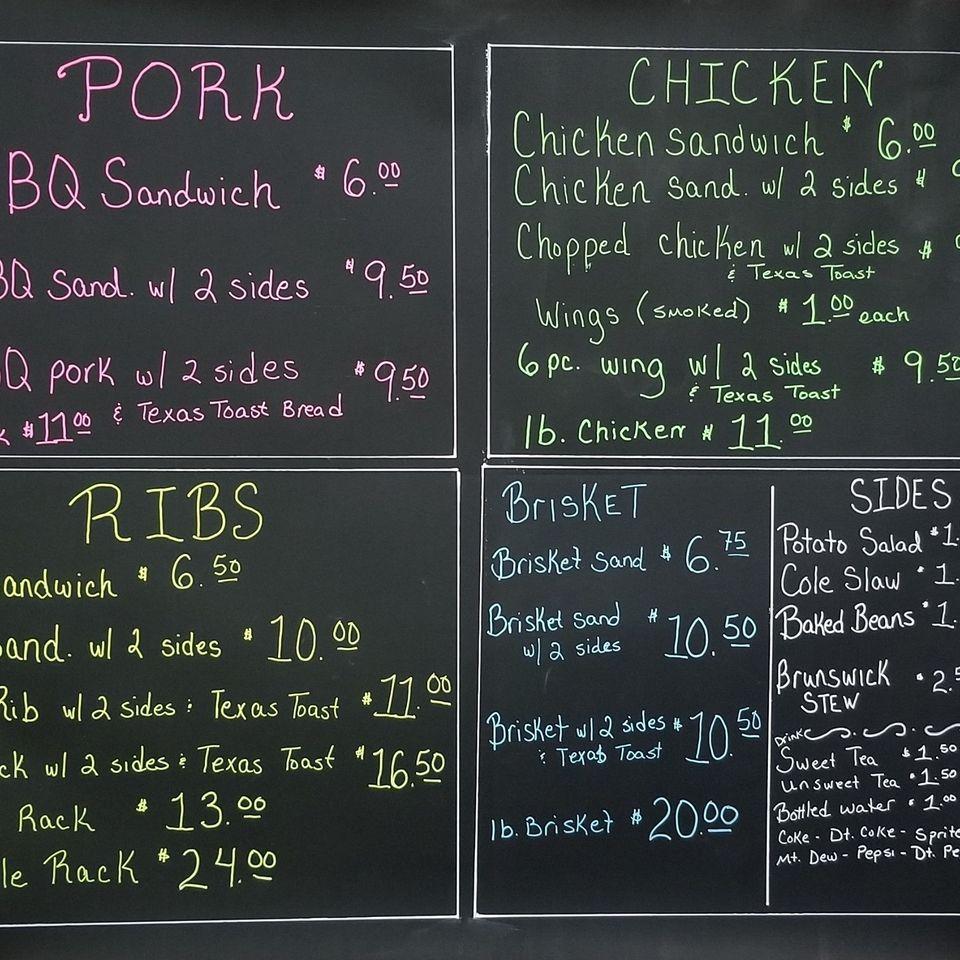 PORK
BQ Sandwich $6.00
BQ Sand. w/ 2 sides $9.50
Q pork w/ 2 sides $9.50
& Texas Toast Bread
$11.00
CHICKEN
Chicken Sandwich $6.00
Chicken Sand. w/ 2 sides $
Chopped chicken w/ 2 sides $
& Texas Toast
Wings (smoked) $1.00 each
6 pc. wing w/ 2 sides $9.50
& Texas Toast
lb. Chicken $11.00
RIBS
andwich $6.50
and. w/ 2 sides $10.00
Rib w/ 2 sides & Texas Toast $11.00
ck w/ 2 sides & Texas Toast $16.50
Rack $13.00
le Rack $24.00
BRISKET
Brisket Sand $6.75
Brisket Sand $10.50
w/ 2 sides
Brisket w/ 2 sides $10.50
& Texas Toast
lb. Brisket $20.00
SIDES
Potato Salad $1.
Cole Slaw $1.
Baked Beans $1.
Brunswick $2.5
STEW
Drink
Sweet Tea $1.50
Unsweet Tea $1.50
Bottled Water $1.00
Coke - Dt. Coke - Sprite
Mt. Dew - Pepsi - Dt. Pe